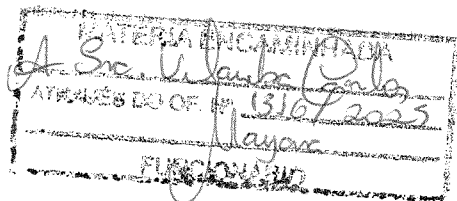 MATÉRIA ENCAMINHADA
A Sra. Carlos
ATRAVÉS DO OF. Nº 1316/2025
Mayara
FUNCIONÁRIO